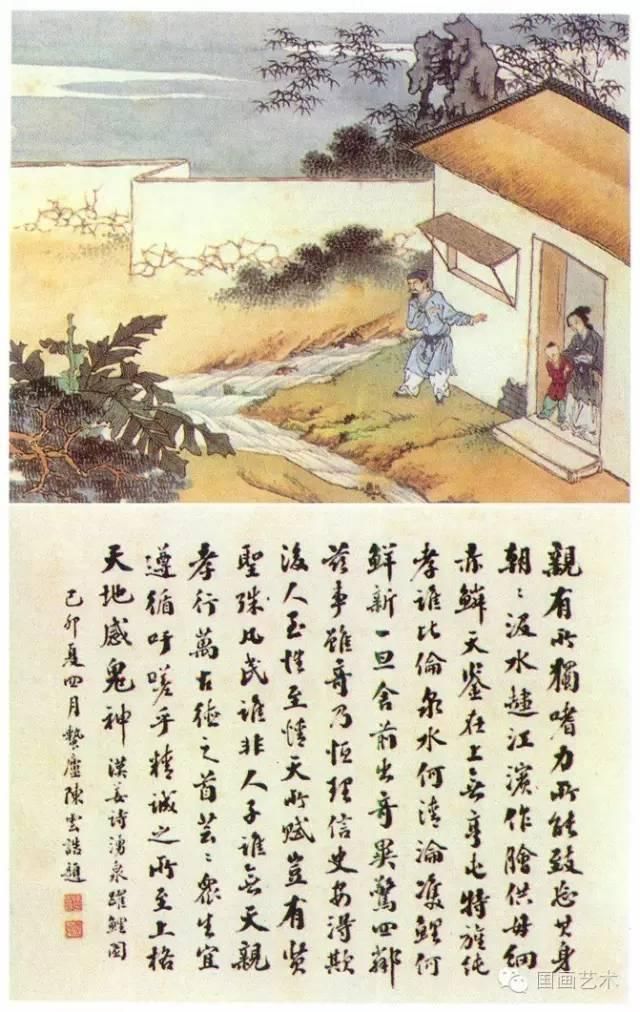 親有所獨嗜力所能致忘其身
朝〻汲水趨江濱作膾供母細
赤鱗天鑒在上無亨屯特旌純
孝誰比倫泉水何清淪雙鯉何
鮮新一旦舍前出奇異驚四鄰
茲事雖奇乃恒理信史安得欺
後人至性至情天所賦豈有賢
聖殊凡民誰非人子誰無天親
孝行萬古德之首芸〻衆生宜
遵循吁嗟乎精誠之所至上格
天地感鬼神 漢姜詩湧泉躍鯉圖
己卯夏四月蟄廬陳雲誥題
国画艺术